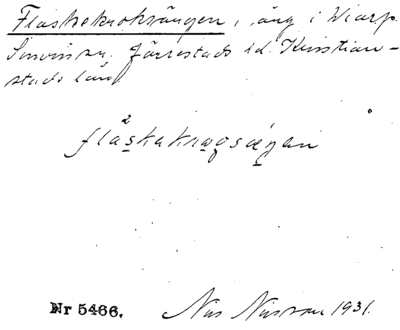 Flaskekroksängen, äng i Wiarp
Simris sn. Järrestads hd. Kristian-
stads län
flåskakrogsæŋan
Nr 5466. Nils 1931.